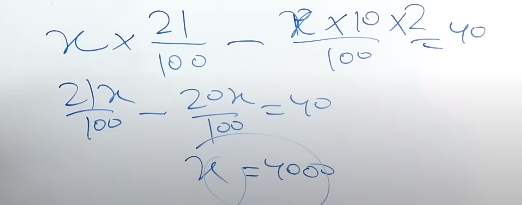 x × 21/100 - x × 10 × 2/100 = 40
21x/100 - 20x/100 = 40
x = 4000